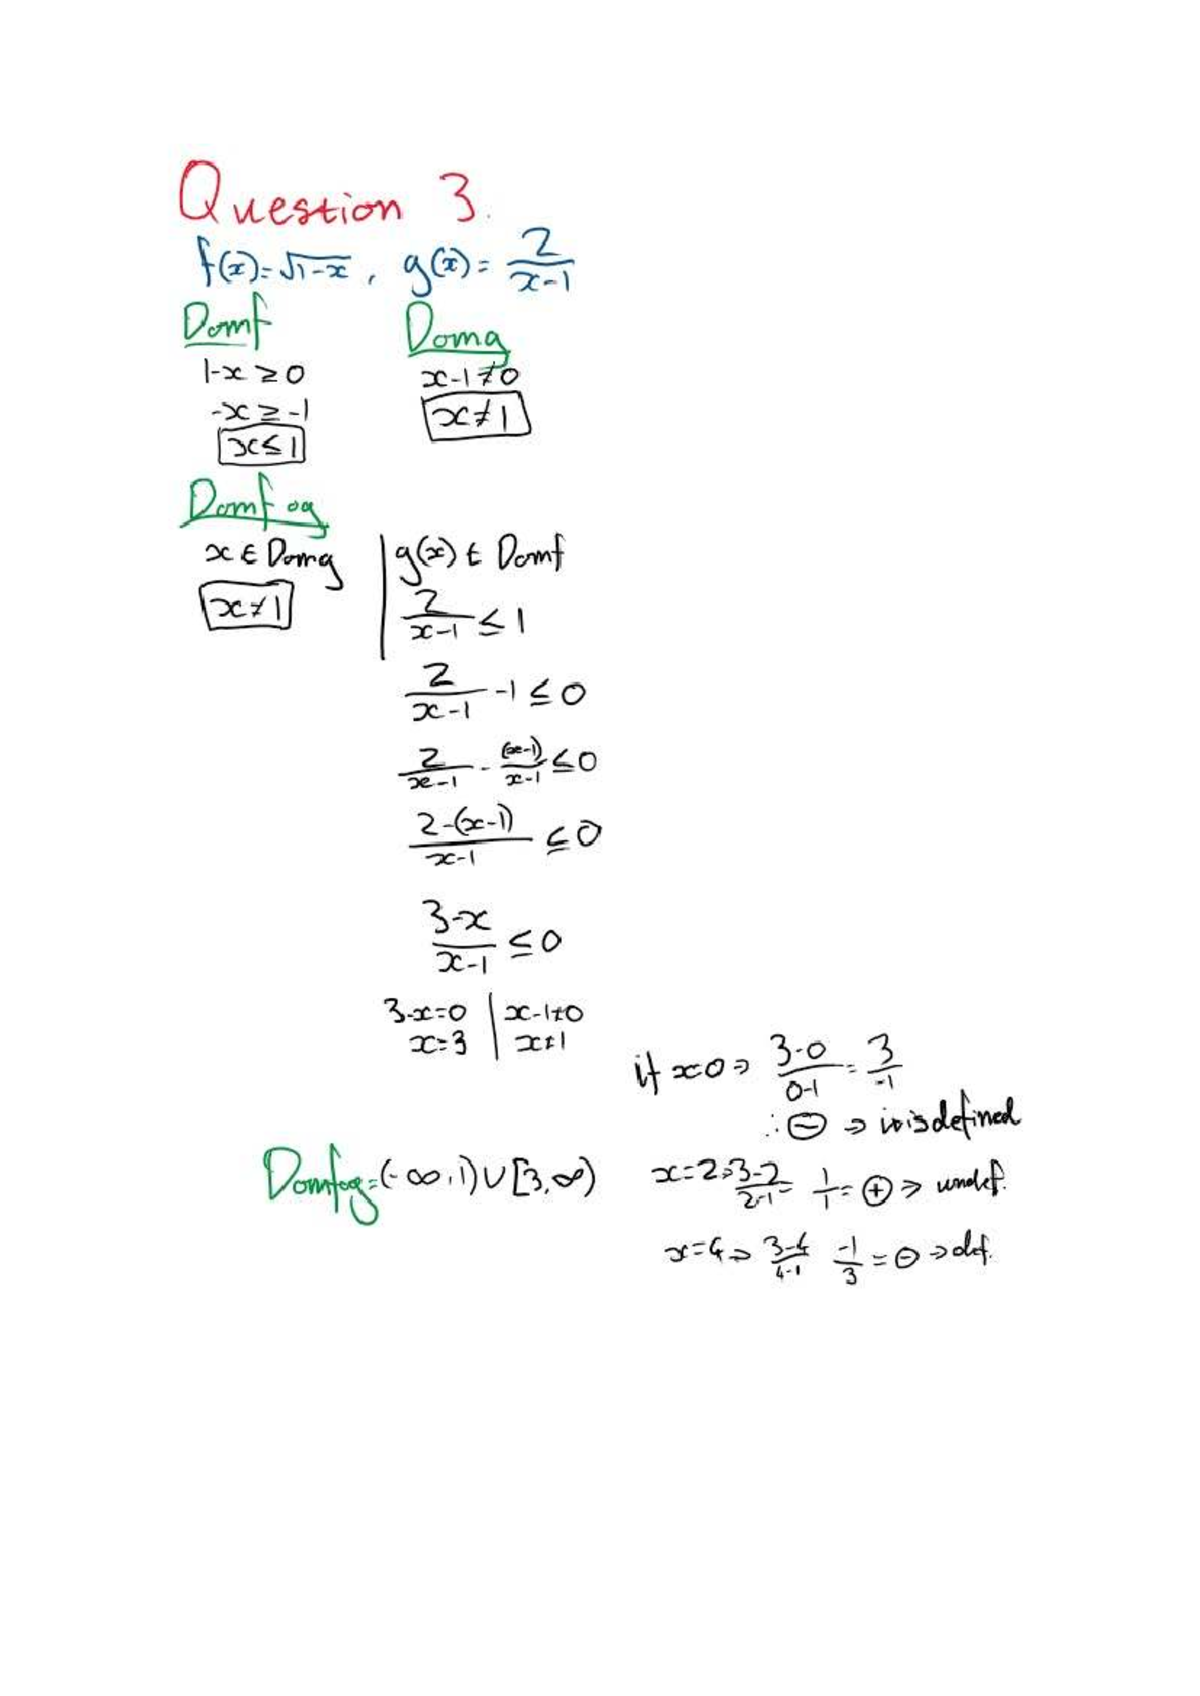 Question 3.
f(x)=√1-x , g(x)= 2/(x-1)
Domf Domg
1-x ≥ 0 x-1≠0
-x ≥ -1 x≠1
x≤1
Domfog
x ∈ Domg | g(x) ∈ Domf
x≠1 2/(x-1) ≤ 1
2/(x-1) -1 ≤ 0
2/(x-1) - (x-1)/(x-1) ≤ 0
2-(x-1)/(x-1) ≤ 0
3-x/(x-1) ≤ 0
3-x=0 | x-1≠0
x=3 | x≠1
if x=0 ⇒ 3-0/0-1 = 3/-1
∴ ⊖ ⇒ is defined
Domfog=(-∞,1)∪[3,∞)
x=2⇒ 3-2/2-1 = 1/1 = ⊕ ⇒ undef.
x=4⇒ 3-4/4-1 -1/3 = ⊖ ⇒ def.